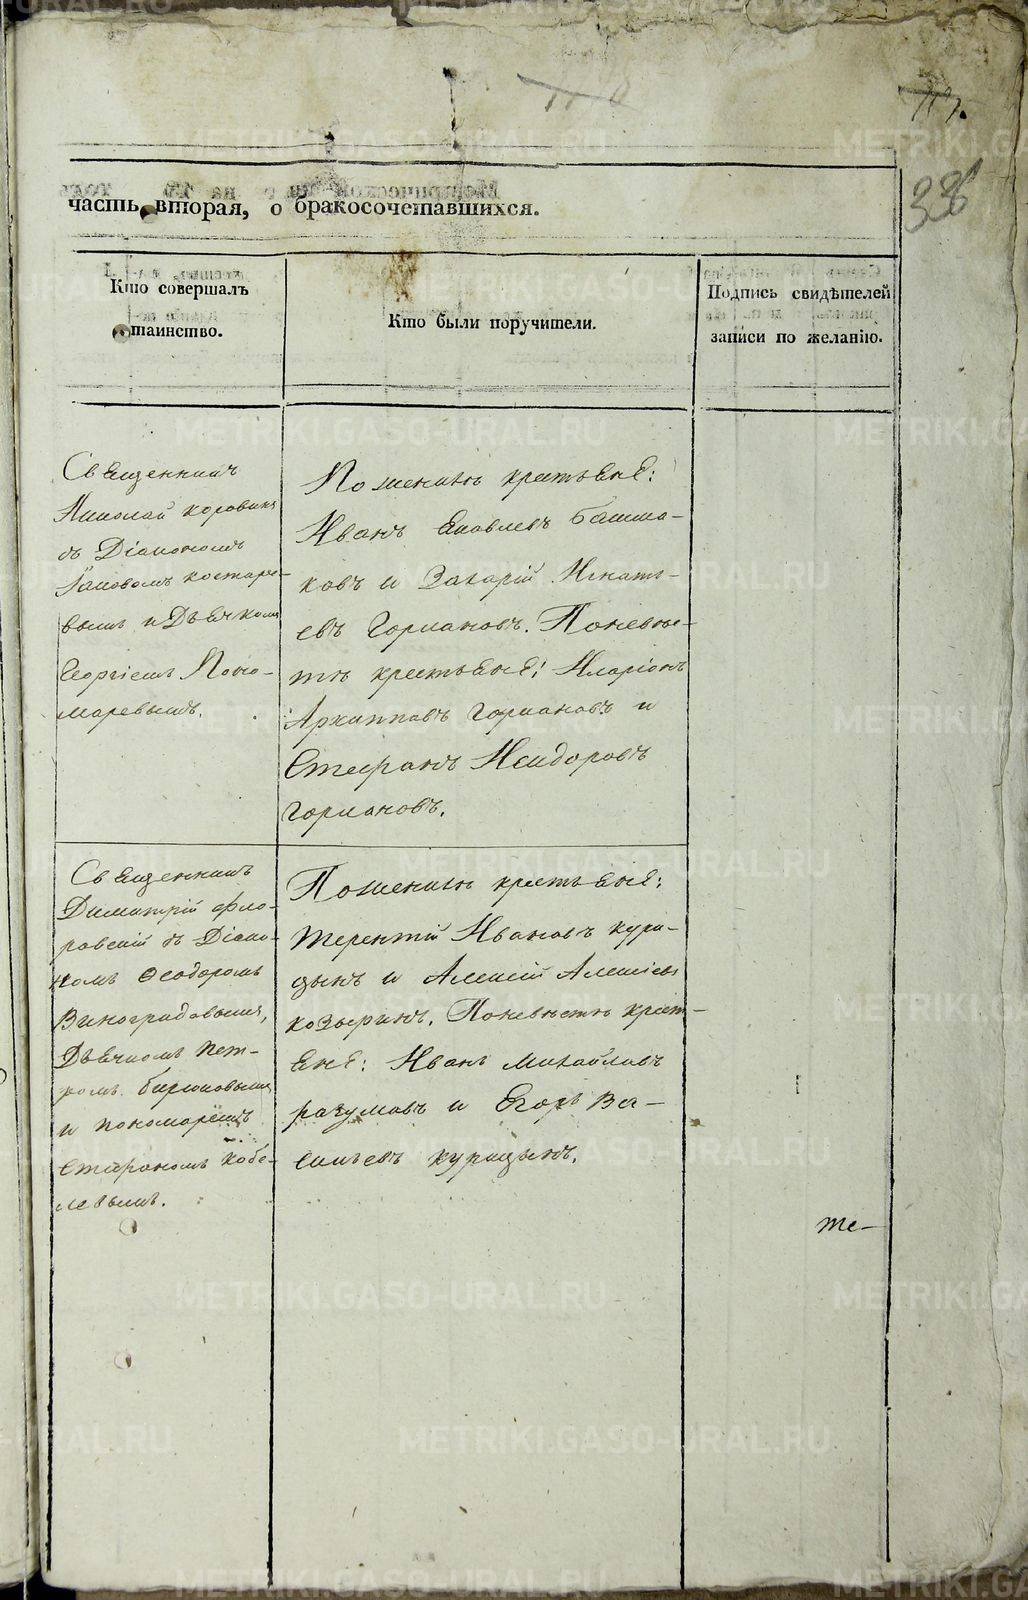 часть вторая, о бракосочетавшихся.
Кто совершалъ
таинство.
Кто были поручители.
Подпись свидѣтелей
записи по желанію.
Священникъ
Николай Коровинъ
съ Діакономъ
Іаковомъ Костаре-
вымъ и Дьячкомъ
Георгіемъ Поно-
маревымъ.
По женихѣ крестьяне:
Иванъ Яковлевъ Башма-
ковъ и Захарій Игнать-
евъ Горлановъ. По невѣс-
тѣ крестьяне: Иларіонъ
Архиповъ Горлановъ и
Стефанъ Исидоровъ
Горлановъ.
Священникъ
Димитрій Фло-
ровскій съ Діако-
номъ Ѳеодоромъ
Виноградовымъ,
Дьячкомъ Пет-
ромъ Бирюковымъ
и пономарёмъ
Стефаномъ Кобе-
левымъ.
По женихѣ крестьяне:
Терентій Ивановъ Кури-
цынъ и Алексій Алексіевъ
Козыринъ. По невѣстѣ крест-
яне: Иванъ Михайловъ
Разумовъ и Егоръ Ва-
сильевъ Курицынъ.
те-
METRIKI.GASO-URAL.RU